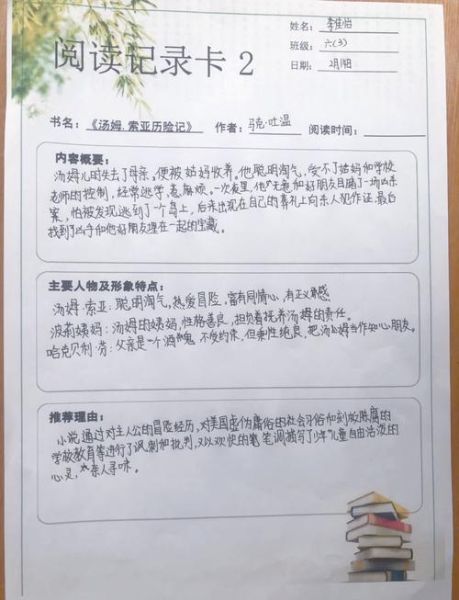 姓名：
班级：六(3)
阅读记录卡 2
日期：2月1日
书名：《汤姆.索亚历险记》 作者：马克·吐温 阅读时间：
内容概要：
汤姆儿时失去了母亲，便被姑妈收养。他聪明淘气，受不了姑妈和学校
老师的控制，经常逃学惹麻烦。一次夜里，他无意和好朋友目睹了一场凶杀
案，怕被发现逃到了一个岛上，后来出现在自己的葬礼上向杀人犯作证，最后
找到了凶手和他好朋友埋在一起的宝藏。
主要人物及形象特点：
汤姆·索亚：聪明淘气，热爱冒险，富有同情心，有正义感
波莉姨妈：汤姆的姨妈，性格善良，担负着抚养汤姆的责任。
哈克贝利·芬：父亲是一个酒鬼，不受约束，但秉性纯良，把汤姆当作知心朋友。
推荐理由：
小说通过对主人公的冒险经历，对美国虚伪庸俗的社会习俗和刻板陈腐的
学校教育等进行了讽刺和批判，又以欢快的笔调描写了少年儿童自由活泼的
心灵，杀人寻味。